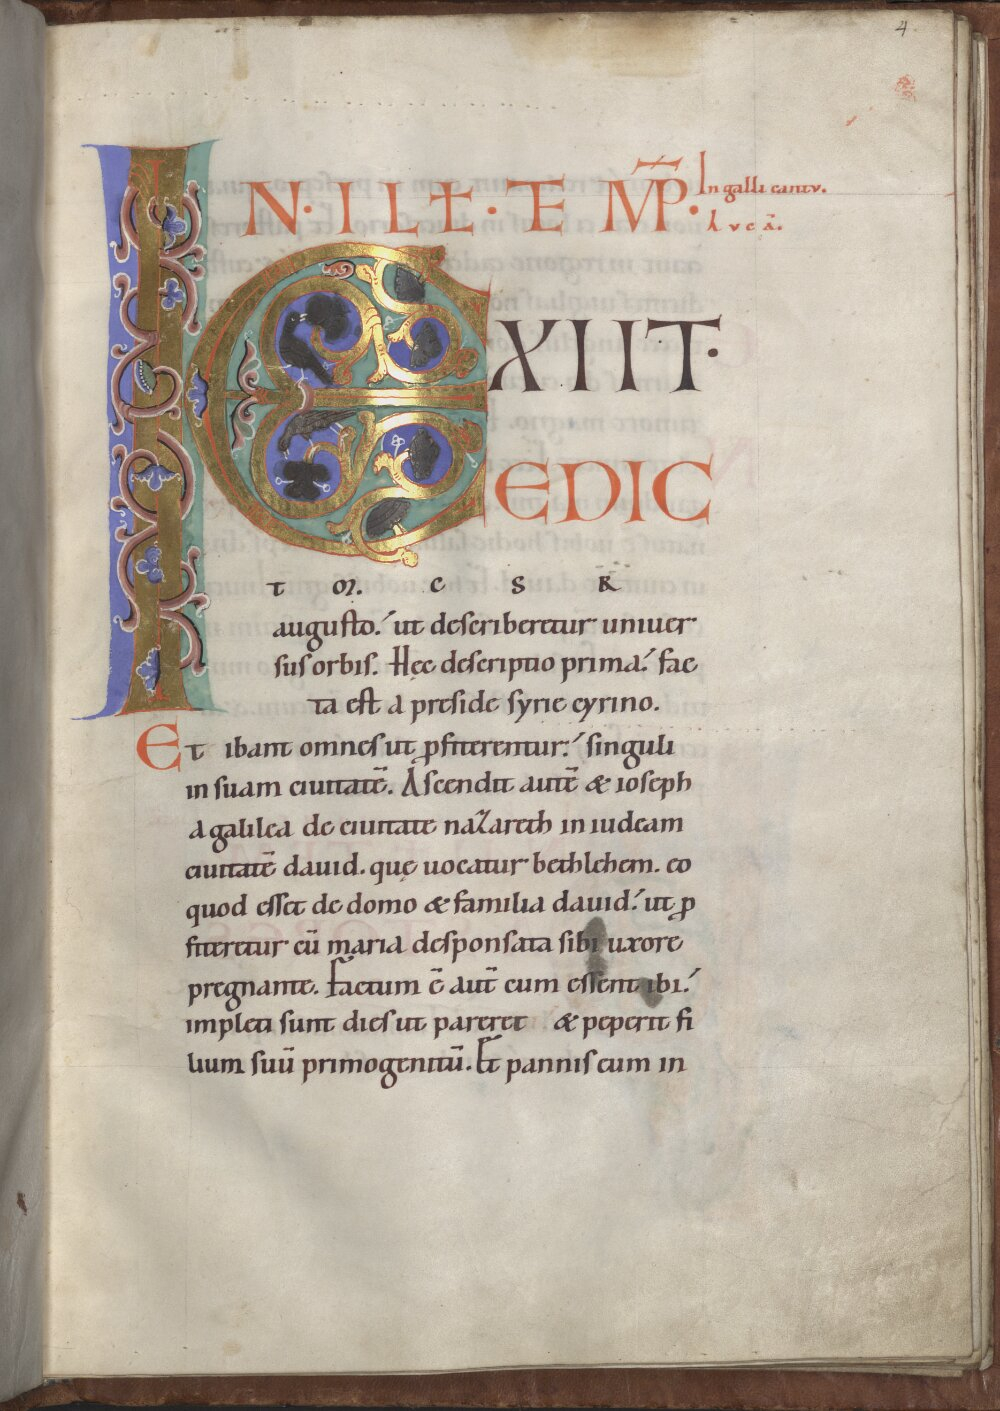 4
IN·ILL̄·TEMP̄·
In galli cantu.
Lucā.
EXIIT·
EDIC
t or. c s r
augusto.́ ut describeretur uniuer
sus orbis. Hęc descriptio prima.́ fac
ta est a preside syrie cyrino.
Et ibant omnes ut ꝓfiterentur.́ singuli
in suam ciuitatē. Ascendit autē & ioseph
a galilea de ciuitate nazareth in iudeam
ciuitatē dauid. quę uocatur bethlehem. eo
quod esset de domo & familia dauid.́ ut ꝓ
fiteretur cū maria desponsata sibi uxore
pregnante. Factum ē autē cum essent ibi.́
impleti sunt dies ut pareret & peperit fi
lium suū primogenitū. Et pannis eum in